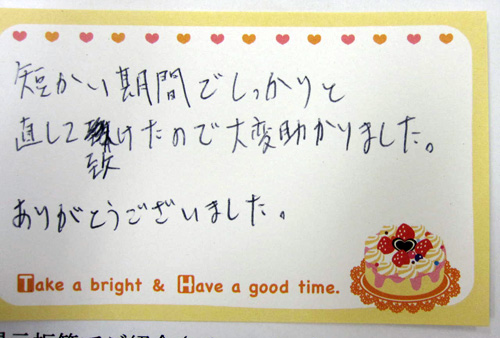 短かい期間でしっかりと
直して頂けたので大変助かりました。
ありがとうございました。
Take a bright & Have a good time.